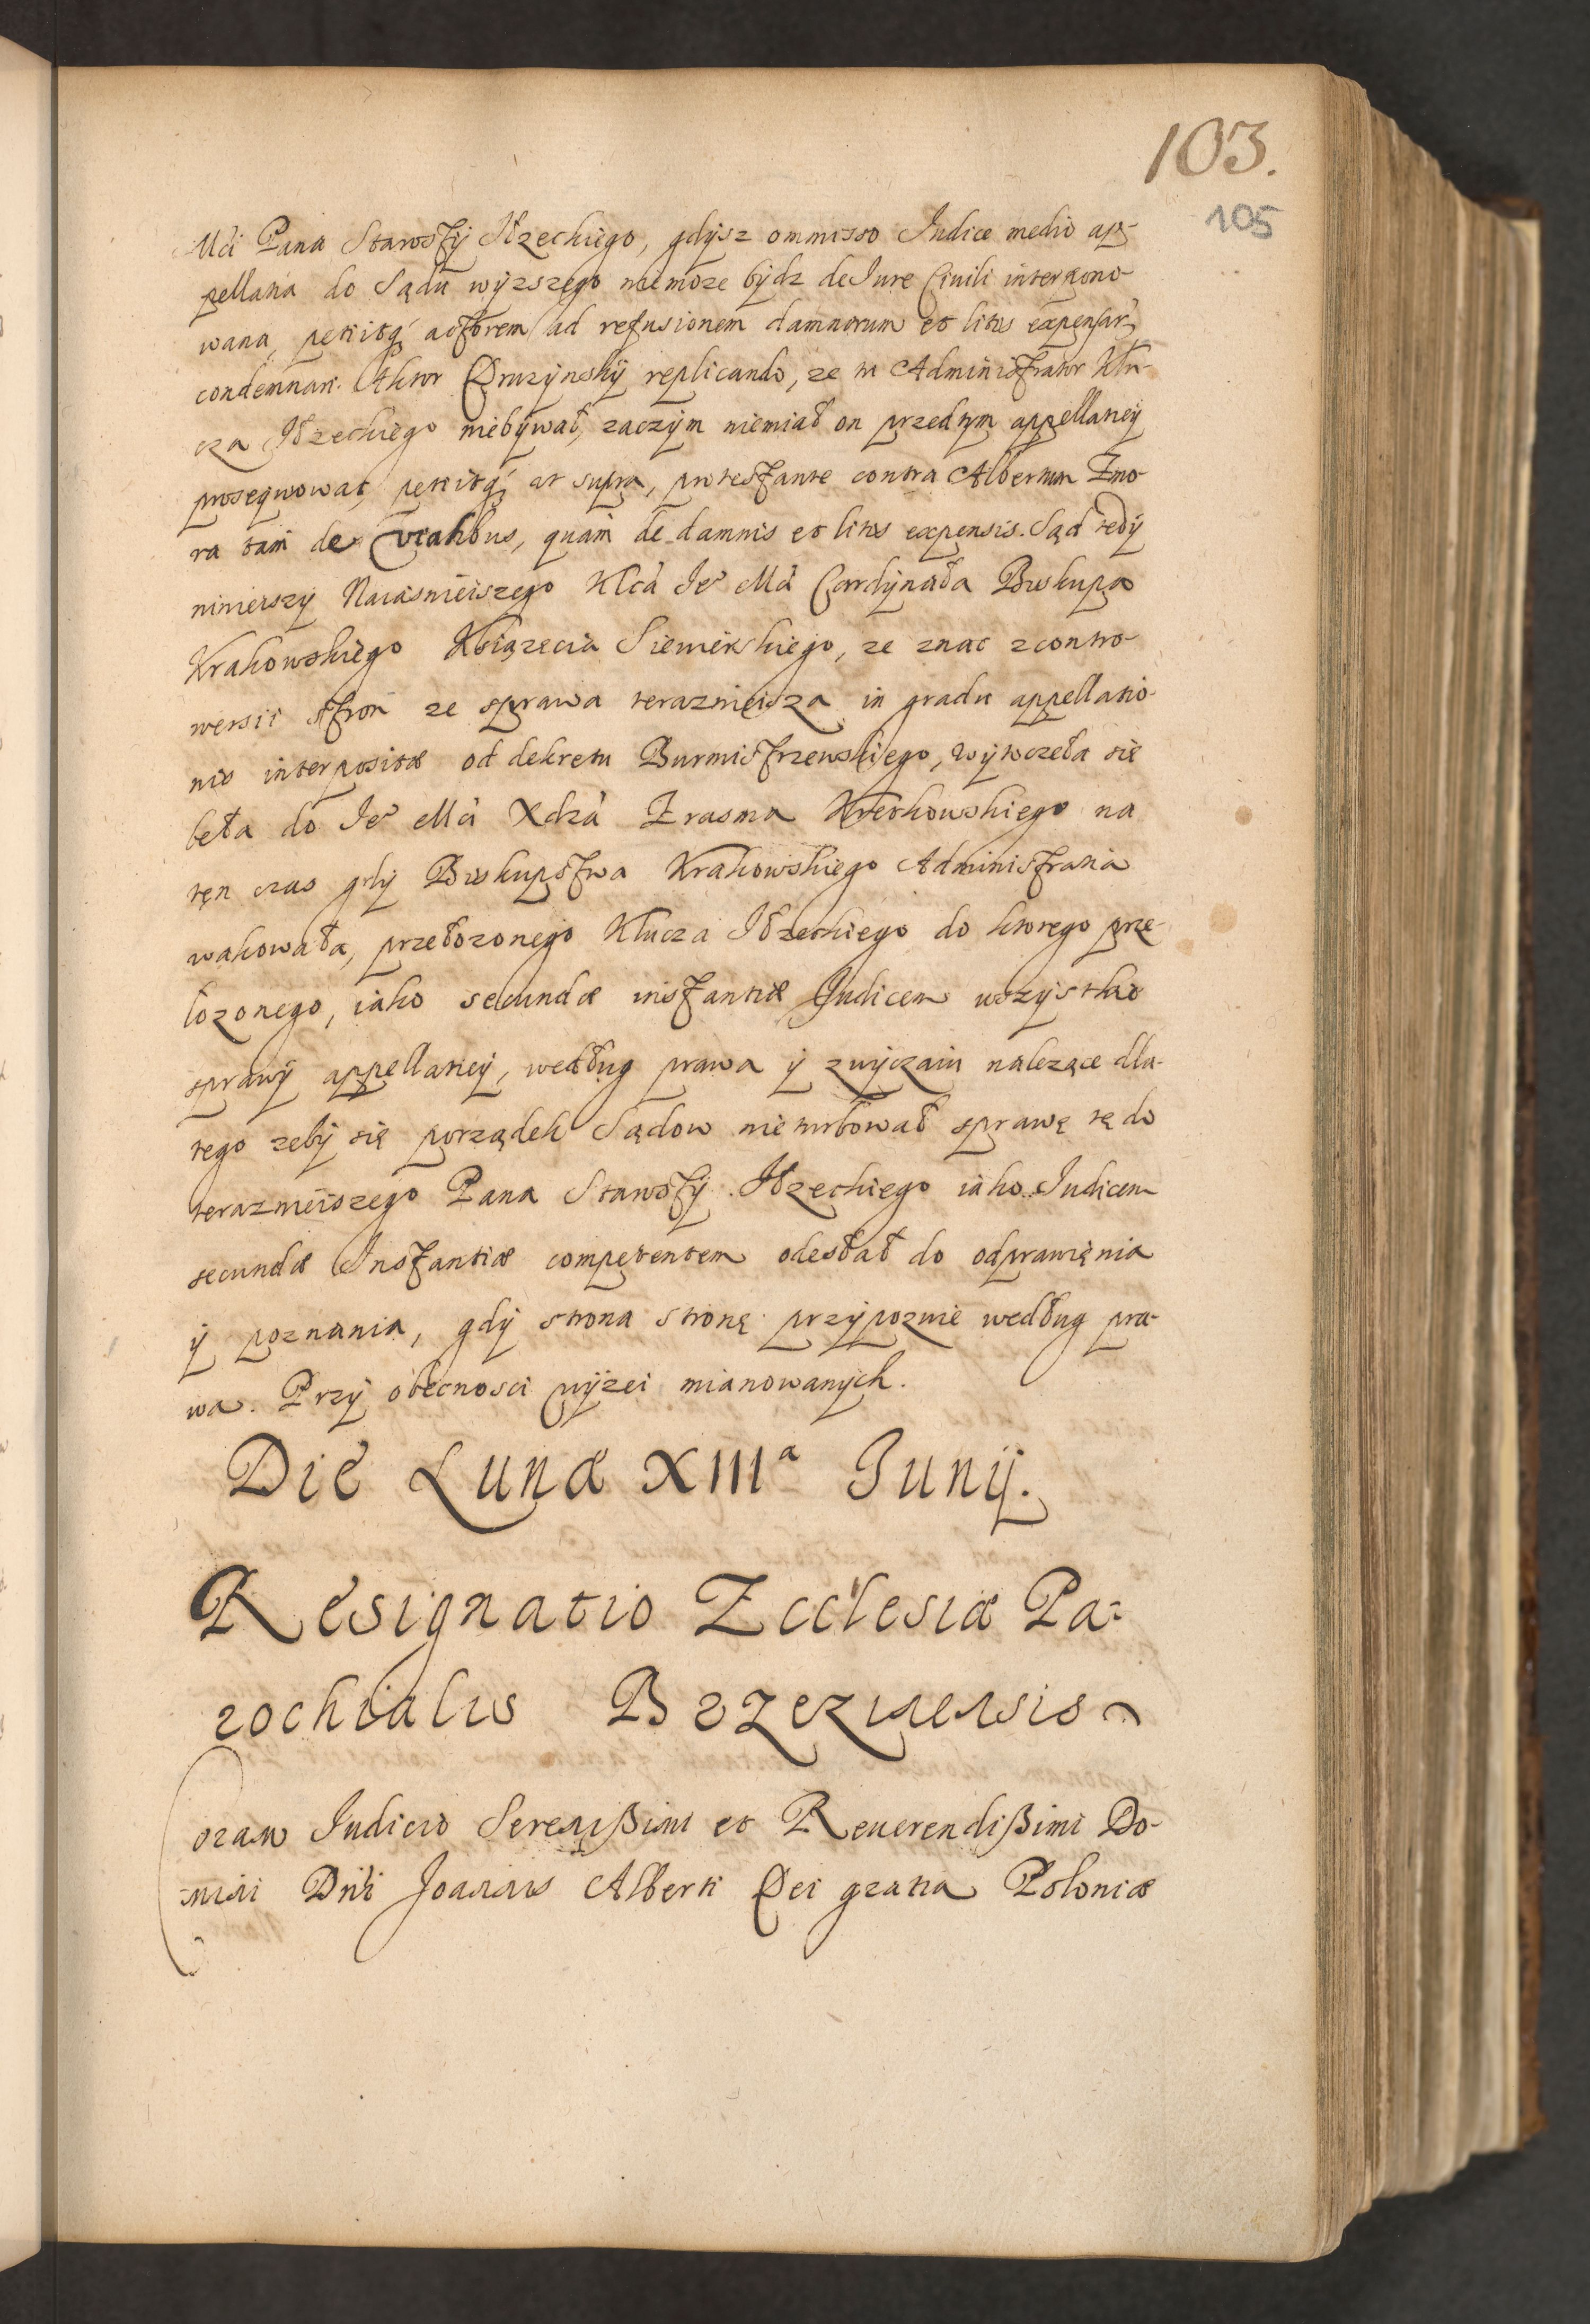 103.
105
Mći Pana Starosty Iłzeckiego, gdysz ommisso Iudice medio ap-
pellatia do Sądu wyzszego niemoze bydz de Iure Ciuili interpono-
wana, petitq́ actorem ad refusionem damnorum et litis expensar̃
condemnari. Aktor Druzynsky replicando, ze tu Administrator Klu-
cza Iłzeckiego niebywał, zaczym niemiał on przedtym appellatiey
prosequowac, petitq́ ut supra, protestante contra Albertum Zmo-
ra tam de vtalibus, quam de damnis et litis expensis. Sąd tedy
ninieiszy Naiasnieiszego Kcia Ie° Mći Cardynała Biskupa
Krakowskiego Ksiązecia Siewierskiego, ze znac z contro-
wersii stron ze sprawa teraznieisza in gradu appellatio-
nis interpositæ od dekretu Burmistrzewskiego, wytoczeła się
beła do Ie° Mći Xdza Erasma Kretkowskiego na
ten czas gdy Biskupstwa Krakowskiego Administratia
wakowała, przełozonego Klucza Iłzeckiego do ktorego prze-
łozonego, iako secundæ instantiæ Iudicem wszystkie
sprawy appellatiey, według prawa y zwyczaiu nalezące dla-
tego zeby się porządek Sądow nie turbował sprawę tę do
teraznieiszego Pana Starosty Iłzeckiego iako Iudicem
secundæ Instantiæ competentem odesłał do odprawienia
y poznania, gdy strona stronę przypozwie według pra-
wa. Przy obecnosci wyzei mianowanych.
Die Lunæ XIIIª Iunij.
Resignatio Ecclesiæ Pa-
rochialis Brzezinensis
Coram Iudicio Serenißimi et Reuerendißimi Do-
mini Dñi Joannis Alberti Dei gratia Poloniæ